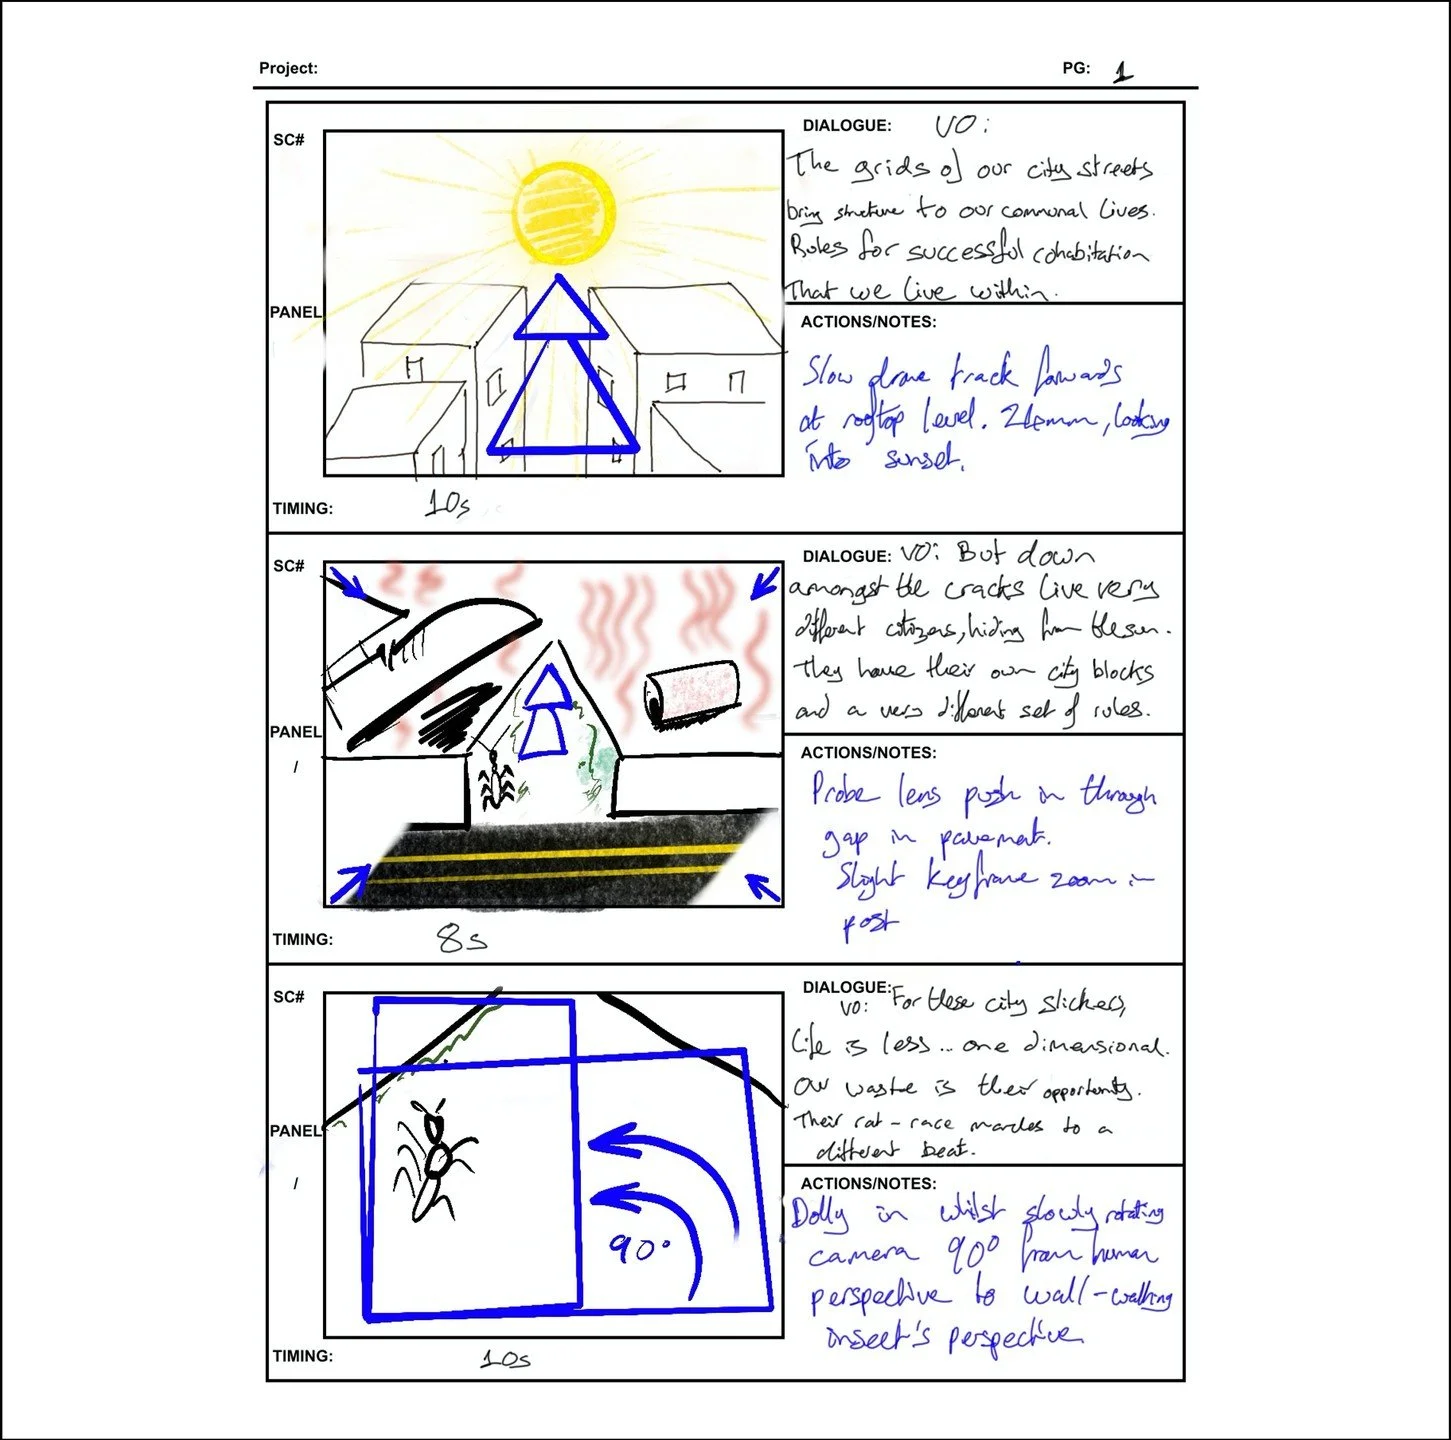 Project:
PG: 1
SC#
DIALOGUE: VO:
The grids of our city streets
bring structure to our communal lives.
Rules for successful cohabitation
that we live within.
PANEL
ACTIONS/NOTES:
Slow drone track forwards
at rooftop level. 24mm, looking
into sunset.
TIMING: 10s
SC#
DIALOGUE: VO: But down
amongst the cracks live very
different citizens, hiding from the sun.
They have their own city blocks
and a very different set of rules.
PANEL
/
ACTIONS/NOTES:
Probe lens push in through
gap in pavement.
Slight keyframe zoom in
post
TIMING: 8s
SC#
DIALOGUE:
VO: For these city slickers,
life is less... one dimensional.
Our waste is their opportunity.
Their rat-race marches to a
different beat.
PANEL
/
90°
ACTIONS/NOTES:
Dolly in whilst slowly rotating
camera 90° from human
perspective to wall-walking
insect's perspective
TIMING: 10s